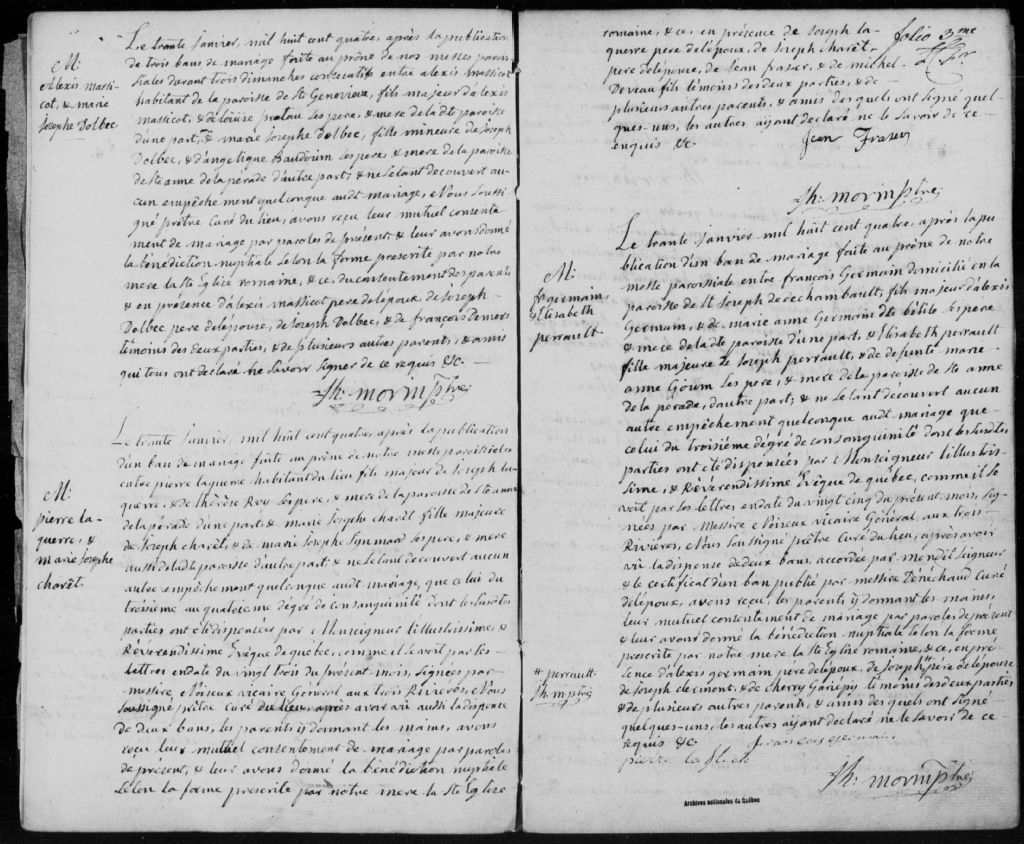 M:
Alexis massi-
cot, & marie
Josephe Dolbec.
Le trante Janvier, mil huit cent quatre, après la publication
de trois bans de mariage faite au prône de nos messes parois-
siales durant trois dimanches consecutifs entre alexis massicot
habitant de la paroisse de Ste Genevieve, fils majeur d'alexis
massicot, & de Louise proteau ses pere, & mere de la dte paroisse
d'une part, & marie Josephe Dolbec, fille mineure de Joseph
Dolbec, & d'angelique Baudouin ses pere, & mere de la paroisse
de Ste anne de la pérade d'autre part; & ne s'etant decouvert au-
cun empêchement quelconque audt mariage, Nous soussi-
gné prêtre Curé du lieu, avons reçu leur mutuel consente
ment de mariage par paroles de présent, & leur avons donné
la bénédiction nuptiale selon la forme prescrite par notre
mere la Ste Eglise romaine, & ce, du consentement des parents
& en présence d'alexis massicot pere de l'époux, de Joseph
Dolbec pere de l'épouse, de Joseph Dolbec, & de françois Demers
témoins des deux parties, & de plusieurs autres parents, & amis
qui tous ont declaré ne savoir signer de ce requis &c.
Th: morin ptre
M:
pierre la-
guerre, &
marie Josephe
charêt
Le trante Janvier, mil huit cent quatre, après la publication
d'un ban de mariage faite au prône de notre messe paroissiale
entre pierre laguerre habitant du lieu fils majeur de Joseph la-
guerre, & de Thérèse Roy ses pere, & mere de la paroisse de Ste anne
de la pérade d'une part, & marie Josephe charêt fille majeure
de Joseph charêt, & de marie Josephe ses pere, & mere
aussi de la dte paroisse d'autre part; & ne s'etant decouvert aucun
autre empêchement quelconque audt mariage, que celui du
troisième au quatrieme dégré de consanguinité dont les susdites
parties ont été dispensées par Monseigneur l'illustrissime, &
Révérendissime Evêque de québec, comme il se voit par les
lettres en date du vingt trois du présent mois, signées par
messire Noiseux vicaire Général aux trois Rivières, Nous
soussigné prêtre Curé du lieu, après avoir vû aussi la dispense
de deux bans, les parents ÿ donnant les mains, avons
reçu leur mutuel consentement de mariage par paroles
de présent, & leur avons donné la bénédiction nuptiale
selon la forme prescrite par notre mere la Ste Eglise
folio 3me
romaine, & ce, en présence de Joseph la-
guerre pere de l'époux, de Joseph charêt
pere de l'épouse, de Jean fraser, & de michel
Deveau fils témoins des deux parties, & de
plusieurs autres parents, & amis des quels ont signé quel-
ques-uns, les autres aÿant declaré ne le savoir de ce
enquis &c.
Jean Fraser
Th: morin ptre
M:
fr germain,
& Elisabeth
perrault.
Le trante Janvier mil huit cent quatre, après la pu-
blication d'un ban de mariage faite au prône de notre
messe paroissiale entre françois Germain domicilié en la
paroisse de St Joseph de dechambault, fils majeur d'alexis
Germain, & de marie anne Germain dte belile ses pere
& mere de la dte paroisse d'une part, & Elisabeth perrault
fille majeure de Joseph perrault, & de defunte marie
anne Gouin ses pere, & mere de la paroisse de Ste anne
de la perade, d'autre part; & ne s'etant découvert aucun
autre empêchement quelconque audt mariage que
celui du troisiéme dégré de consanguinité dont les susdites
parties ont été dispensées par Monseigneur l'illustris-
sime, & Révérendissime Evêque de québec, comme il se
voit par ses lettres en date du vingt cinq du présent mois, sig-
nées par Messire Noiseux vicaire Général aux trois-
Rivières, Nous soussigné prêtre Curé du lieu, après avoir
vû la dispense de deux bans, accordée par mondit seigneur
& le certificat d'un ban publié par messire Dénéchaud Curé
de l'époux, avons reçu, les parents ÿ donnant les mains,
leur mutuel consentement de mariage par paroles de présent
& leur avons donné la bénédiction nuptiale selon la forme
prescrite par notre mere la Ste Eglise romaine, & ce, en pre-
sence d'alexis germain pere de l'époux, de Joseph # pere de l'épouse
# perrault.
Th: m ptre
de Joseph clement, & de cherry Gariépy témoins des deux parties
& de plusieurs autres parents, & amis des quels ont signé
quelques-uns, les autres aÿant déclaré ne le savoir de ce
requis &c.
francois germain
pierre la fleche
Th: morin ptre
Archives nationales du Québec